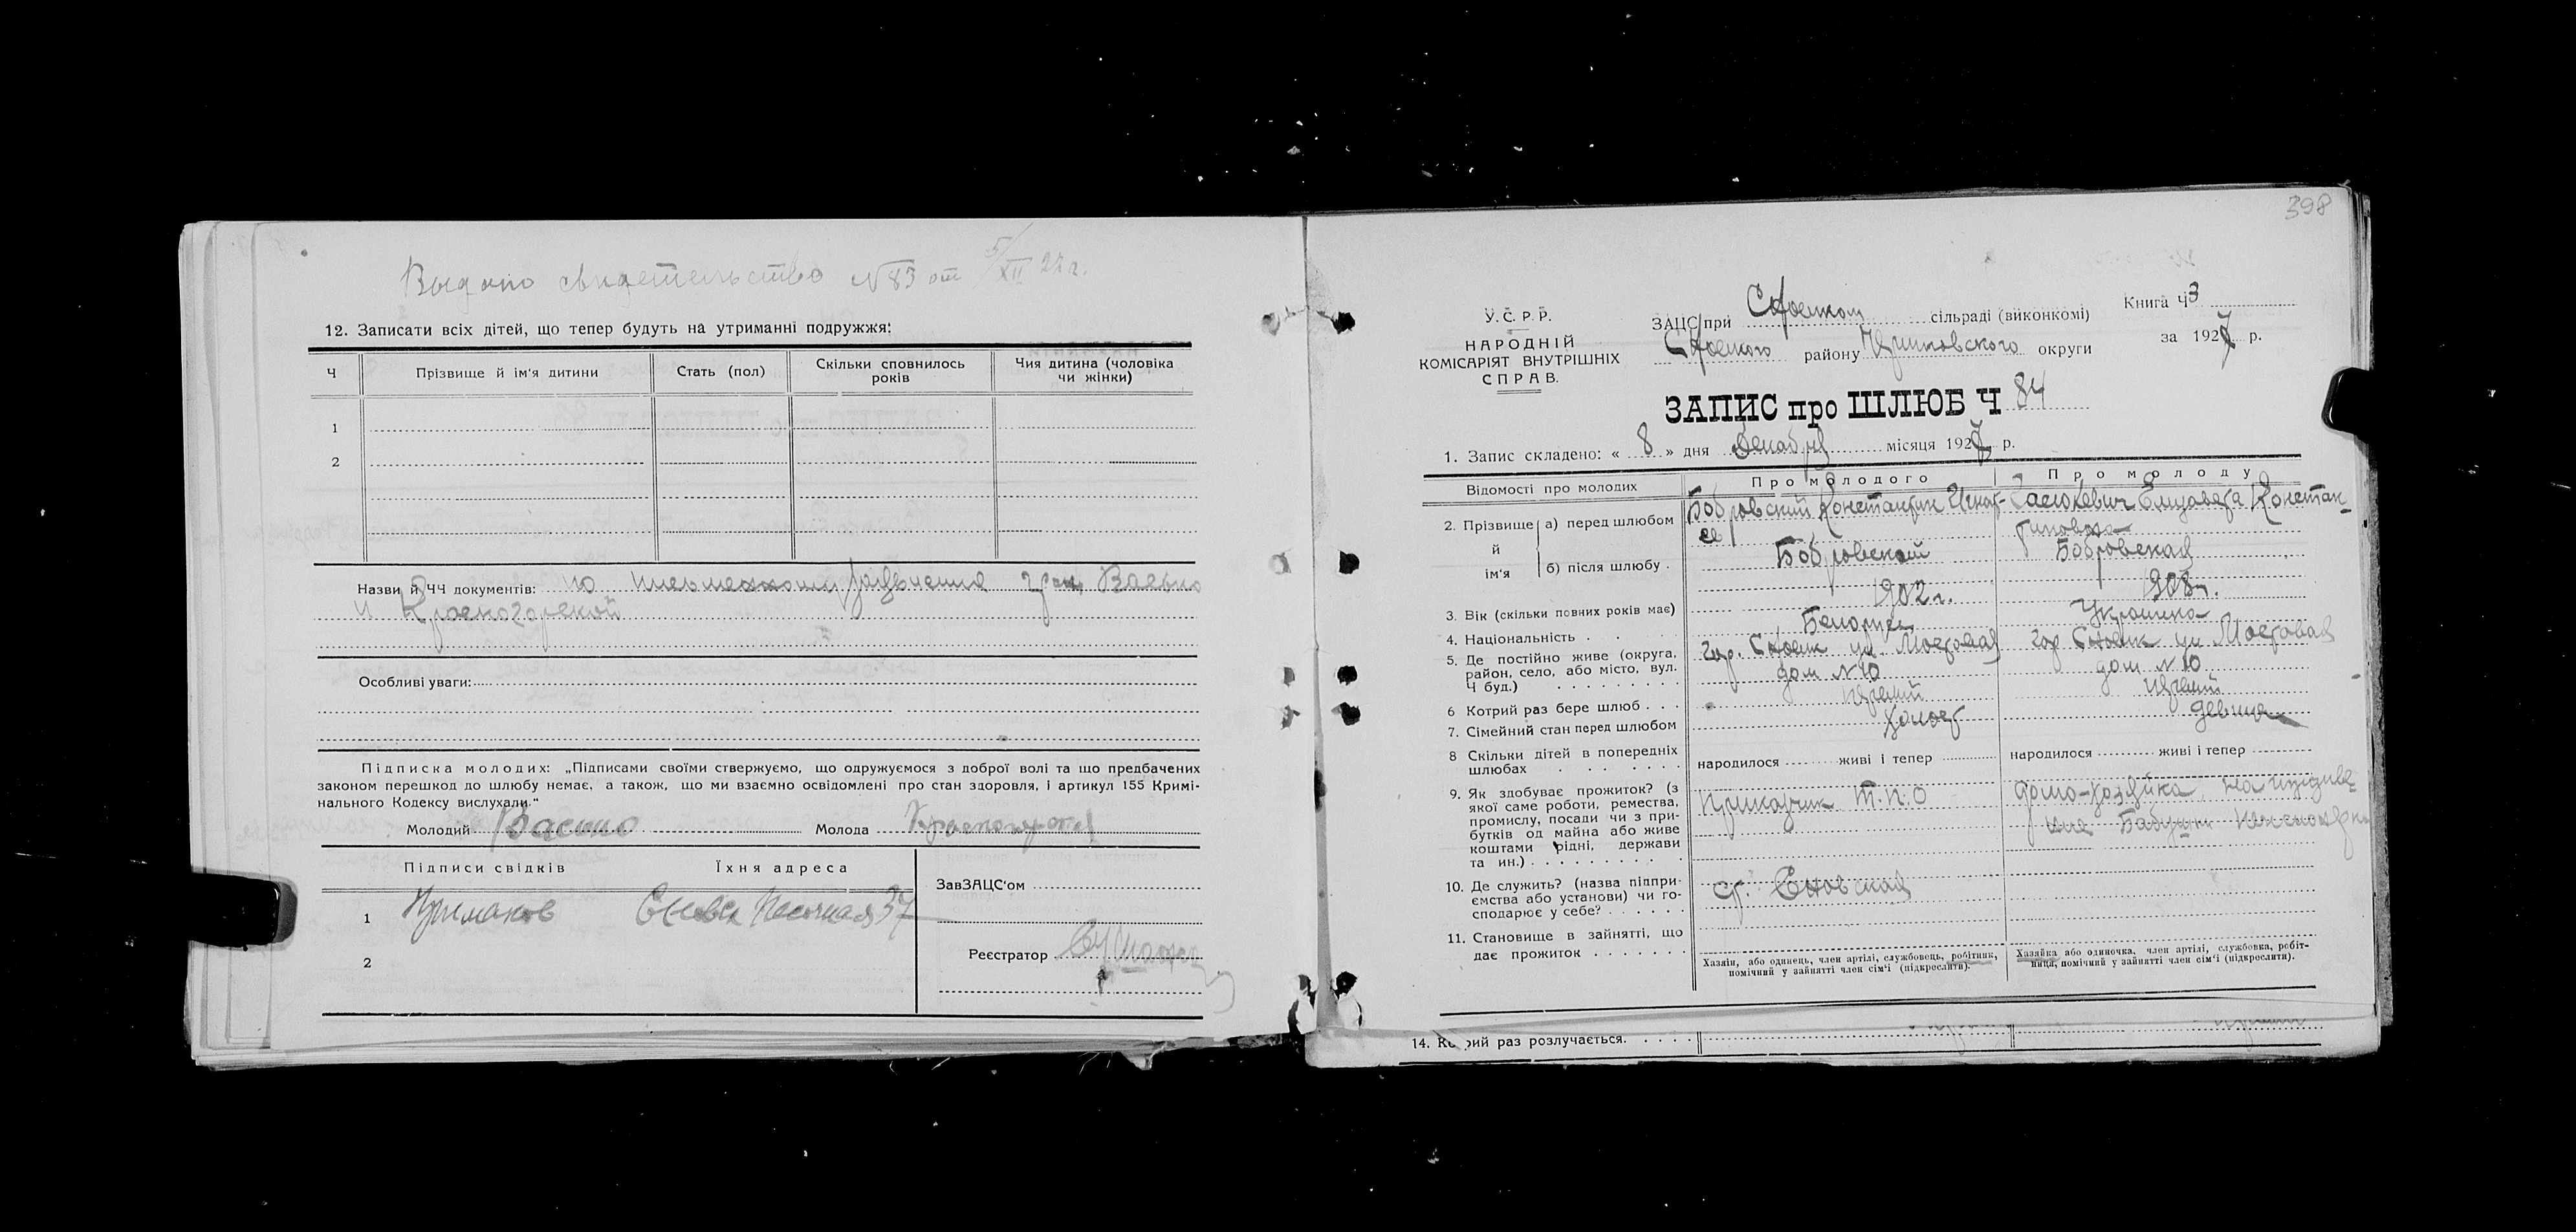 Выдано свидетельство №83 от 5/XII 27 г.
12. Записати всіх дітей, що тепер будуть на утриманні подружжя:
Ч Прізвище й ім'я дитини Стать (пол) Скільки сповнилось років Чия дитина (чоловіка чи жінки)
1
2
Назви й ЧЧ документів: по
и Красногорской
Особливі уваги:
Підписка молодих: „Підписами своїми стверджуємо, що одружуємося з доброї волі та що предбачених
законом перешкод до шлюбу немає, а також, що ми взаємно освідомлені про стан здоровля, і артикул 155 Кримі-
нального Кодексу вислухали."
Молодий Молода
Підписи свідків Їхня адреса
ЗавЗАЦС'ом
1 Примаков Сновск Песочная 37
Реєстратор
2
398
У.С.Р.Р.
НАРОДНІЙ
КОМІСАРІЯТ ВНУТРІШНІХ
СПРАВ.
ЗАЦС при сільраді (виконкомі)
району округи
Книга Ч 3
за 1927 р.
ЗАПИС про ШЛЮБ Ч 84
1. Запис складено: « 8 » дня Декабря місяця 1927 р.
Відомості про молодих Про молодого Про молоду
2. Прізвище й ім'я
а) перед шлюбом Бобровский Константин Елизавета Констан-
тиновна
б) після шлюбу . Бобровский Бобровская
3. Вік (скільки повних років має) 1902 г. 1908 г.
4. Національність . . Украинка
5. Де постійно живе (округа, район, село, або місто, вул. Ч буд.) гор. Сновск ул. Мостовая дом №10 гор Сновск ул Мостовая дом №10
6 Котрий раз бере шлюб . . . первый первый
7. Сімейний стан перед шлюбом холост девица
8 Скільки дітей в попередніх шлюбах народилося живі і тепер народилося живі і тепер
9. Як здобуває прожиток? (з якої саме роботи, ремества, промислу, посади чи з при-бутків од майна або живе коштами рідні, держави та ин.) Приказчик Т.П.О домо-хозяйка, на иждиве-
10. Де служить? (назва підпри-ємства або установи) чи го-сподарює у себе? ст. Сновская
11. Становище в зайнятті, що дає прожиток
Хазяїн, або одинець, член артілі, службовець, робітник, помічний у зайнятті член сім'ї (підкреслити).
Хазяйка або одиночка, член артілі, службовка, робіт-ниця, помічний у зайнятті член сім'ї (підкреслити).
14. Котрий раз розлучається.